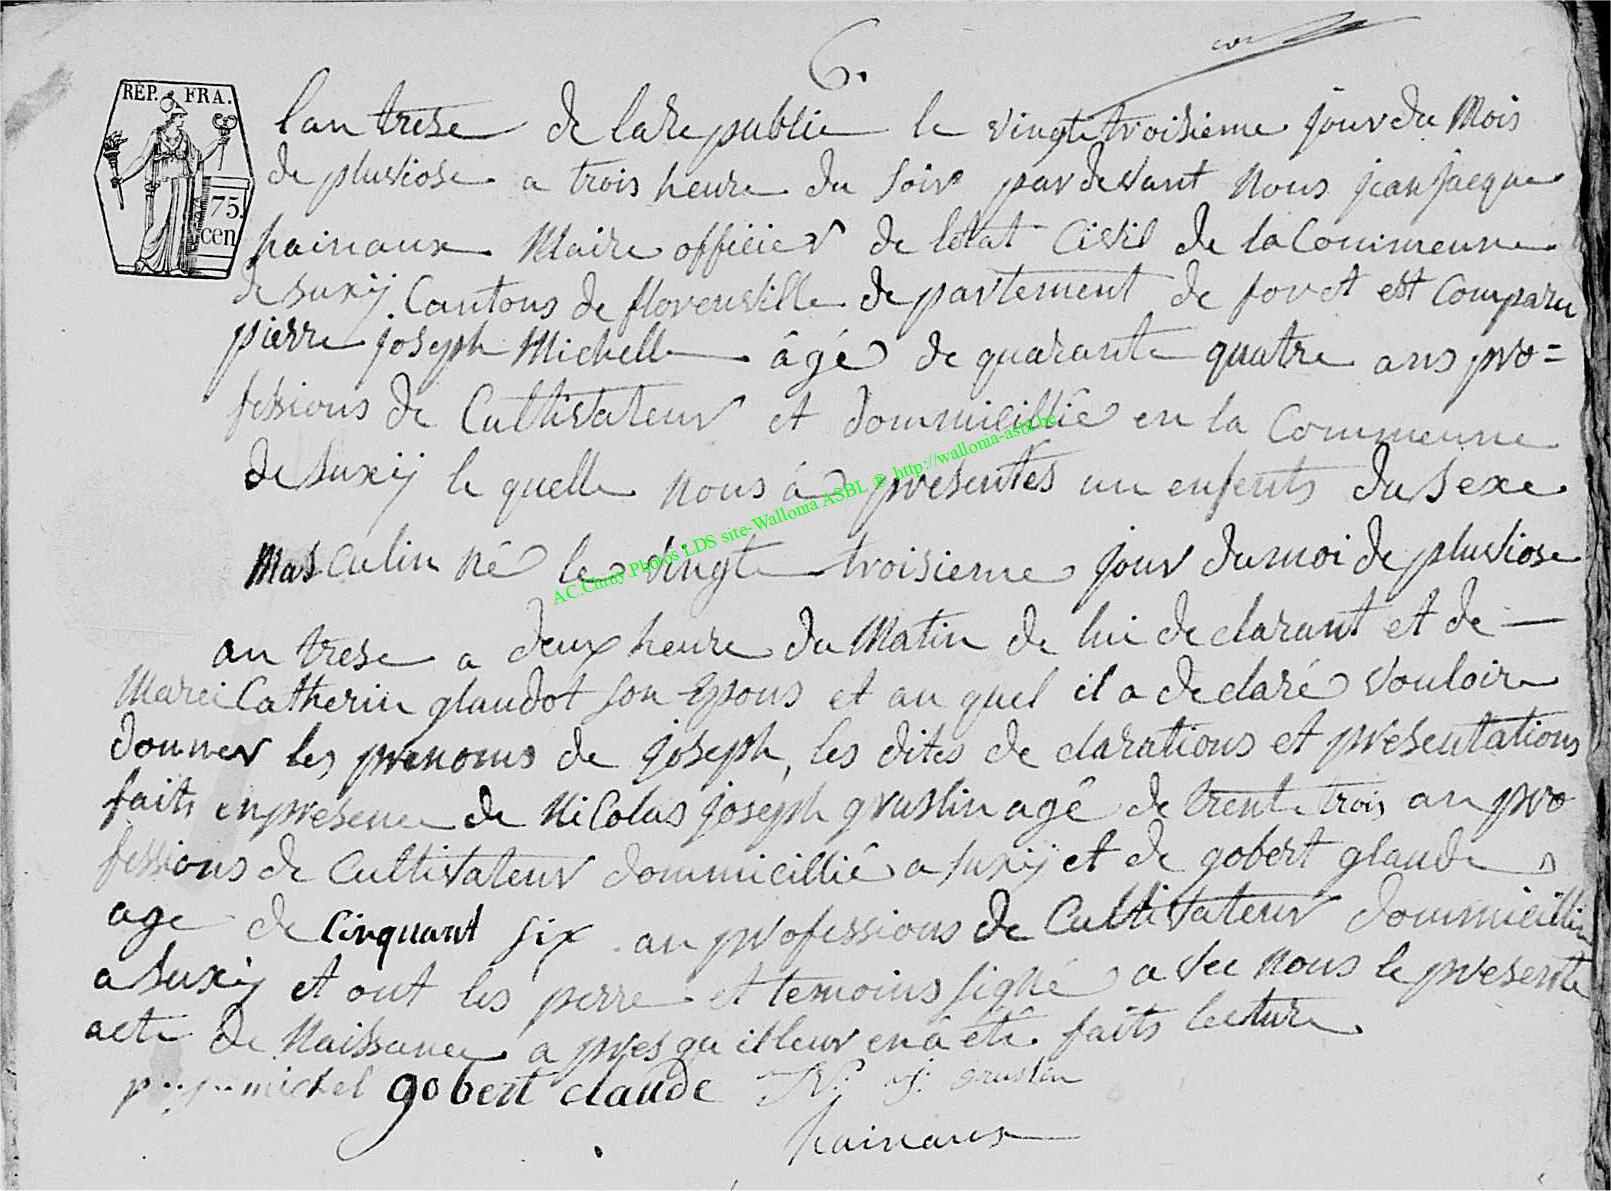 6.
RÉP. FRA.
75.
cen
lan trese de la republie le vingte troisieme jour du Mois
de pluviose a trois heure du soir par devant Nous jean jacque
hainaux Maire officier de letat Civil de la Commeune
de suxÿ Cantons de florenville departement de foret est Comparu
pierre joseph Michelle âgé de quarante quatre ans pro=
fessions de Cultivateur et dommicillié en la Commeune
de suxÿ le quelle nous à presentés un enfents du sexe
Masculin né le vingte troisieme jour du moi de pluviose
an trese a deux heure du Matin de lui declarant et de —
Marei Catherin glaudot son Epous et au quel il a declaré vouloire
donner les prenoms de joseph, les dites declarations et présentations
faits en presence de Nicolas joseph gruslin agé de trente trois an pro
fessions de Cultivateur dommicillié a suxÿ et de gobert glaude
age de Cinquant six an professions de Cultivateur dommicillié
a suxÿ et ont les perre et temoins signé avec nous le presente
acte de Naissance apres qu il leur en a eté faits lecture
p..j.. michel gobert claude N. j. gruslin
hainaux
AC.Chiny Photos LDS site-Wallonia ASBL @ http://wallonia-asbl.be